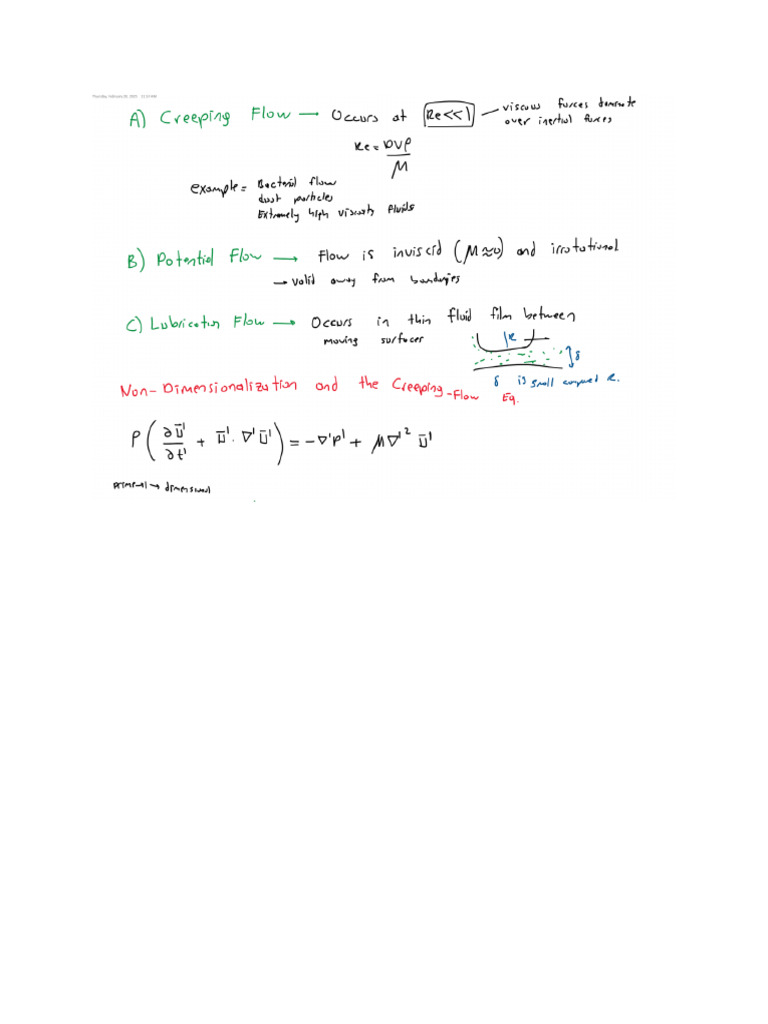 Thursday, February 20, 2025
A) Creeping Flow → Occurs at Re<<1 — viscous forces dominate
over inertial forces
Re = DVρ
μ
example = Bacterial flow
dust particles
Extremely high viscosity fluids
B) Potential Flow → Flow is inviscid (μ≈0) and irrotational
→ valid away from boundaries
C) Lubrication Flow → Occurs in thin fluid film between
moving surfaces
R
δ
δ is small compared R.
Non-Dimensionalization and the Creeping-Flow Eq.
ρ(∂ū'/∂t' + ū'·∇'ū') = -∇'p' + μ∇'² ū'
→ dimensional